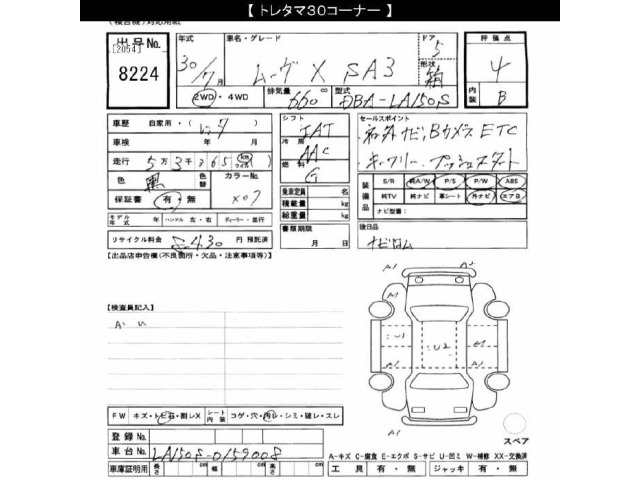 【 トレタマ30コーナー 】
(複合機)対応用紙
出品No. [2054] 8224
年式 30/7月
車名・グレード ムーヴ X SA3
ドア 5
形状 箱
評価点 4
内装 B
2WD・4WD
排気量 660 cc
型式 DBA-LA150S
車歴 自家用・(レンタ)
車検 年 月
走行 5万3千 365 km マイル
色 黒 色替
カラーNo. X07
保証書 有・無
モデル年式 年 ハンドル 左・右 ディーラー・並行
リサイクル料金 8430 円 預託済
シフト IAT
冷房 AAC
燃料 G
乗車定員 名
積載量 kg
総重量 kg
書類期限 月 日
セールスポイント
社外ナビ、Bカメラ ETC
キーフリー プッシュスタート
装備品 S/R A/W P/S P/W ABS
純TV 純ナビ 革シート 外ナビ エアB
ナビ型番:
後日品
ナビロム
【出品店申告欄(不良箇所・欠品・注意事項等)】
【検査員記入】
A. U
A1 A2
A1 A1
U1 U2 A1
A1 A1
FW キズ・トビ石・割レX シート内装 コゲ・穴・汚レ・シミ・破レ・スレ
登録No.
車台No. LA150S-0159008
車庫証明用 長さ cm 幅 cm 高さ cm
スペア
A-キズ C-腐食 E-エクボ S-サビ U-凹ミ W-補修 XX-交換済
工具 有・無 ジャッキ 有・無